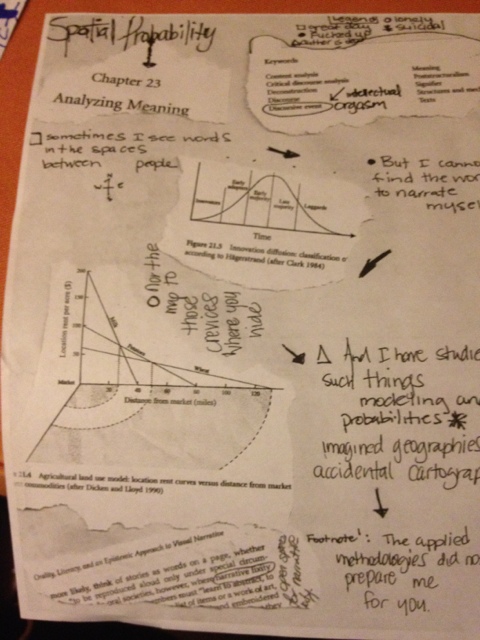 Spatial Probability
Chapter 23
Analyzing Meaning
Legend: o lonely
□ great day * suicidal
• Fucked up
Keywords
Content analysis
Critical discourse analysis
Deconstruction
Discourse
Discursive event
Meaning
Poststructuralism
Signifier
Structures and
Texts
intellectual
orgasm
□ sometimes I see words
in the spaces
between people.
w e
• But I cannot
find the wor
to narrate
myse
Innovators
Early adopters
Early majority
Late majority
Laggards
Time
Figure 21.3 Innovation diffusion: classification
according to Hägerstrand (after Clark 1984)
o nor the
map to
those
crevices
where you
hide
Location rent per acre ($)
200
150
100
50
Milk
Potatoes
Wheat
Market
20 40 60 80 100 120
Distance from market (miles)
Agricultural land use model: location rent curves versus distance from market
commodities (after Dicken and Lloyd 1990)
Δ And I have studie
such things
modeling an
probabilities *
imagined geographies
accidental cartograp
Footnote¹: The applied
methodologies did no
prepare me
for you.
Orality, Literacy, and an Epistemic Approach to Visual Narrative
more likely, think of stories as words on a page, whether
to be reproduced aloud only under special circum-
oral societies, however, where narrative
must "learn to abstract, to
of items or a work of art,
and embroidered